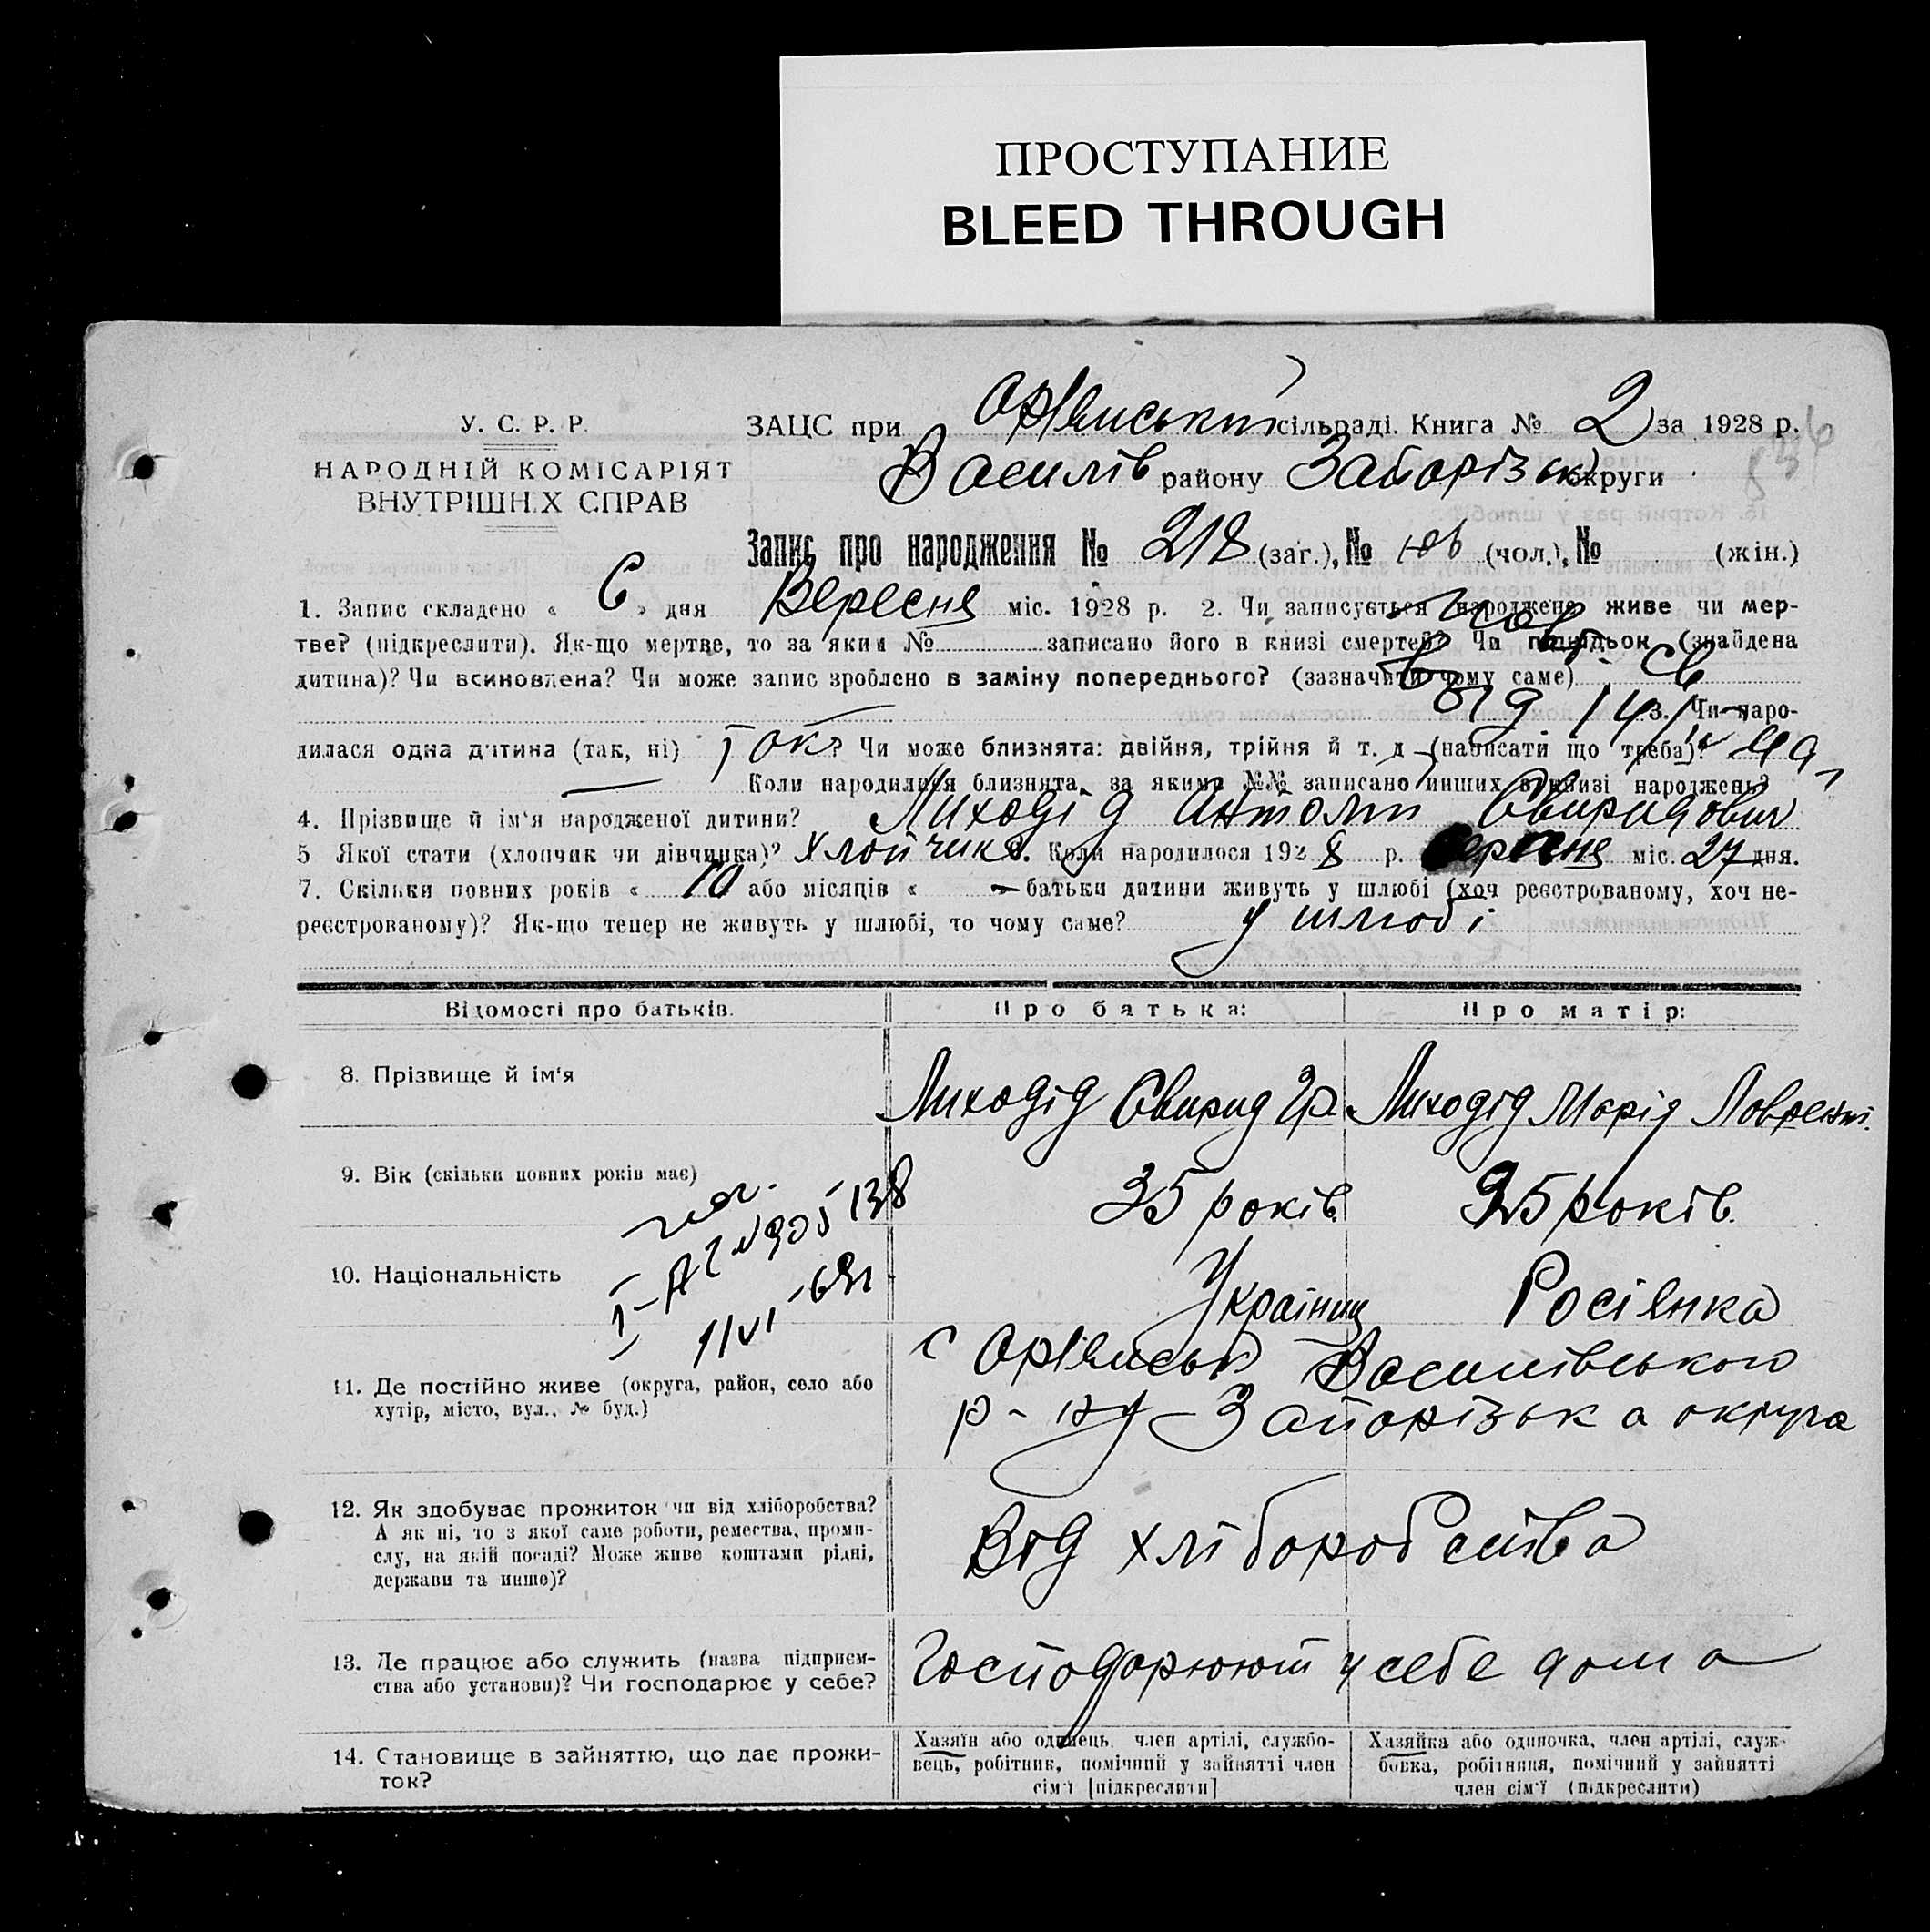 ПРОСТУПАНИЕ
BLEED THROUGH
У. С. Р. Р.
НАРОДНІЙ КОМІСАРІЯТ
ВНУТРІШНІХ СПРАВ
ЗАЦС при сільраді. Книга № 2 за 1928 р.
Василів району Запорізьк округи
Запис про народження № 218 (заг.), № 106 (чол.), № (жін.)
1. Запис складено « 6 » дня Вересня міс. 1928 р. 2. Чи записується народжене живе чи мер-
тве? (підкреслити). Як-що мертве, то за яким № записано його в книзі смертей? Чи підкидьок (знайдена
дитина)? Чи всиновлена? Чи може запис зроблено в заміну попереднього? (зазначити чому саме)
3. Чи наро-
дилася одна дитина (так, ні) Чи може близнята: двійня, трійня й т. д (написати що треба)?
Коли народилися близнята, за якими №№ записано инших в книзі народжень?
4. Прізвище й ім'я народженої дитини? Лиходід Антолій Свиридович
5 Якої стати (хлопчик чи дівчинка)? Хлопчик 6. Коли народилося 1928 р. Серпня міс. 27 дня.
7. Скільки повних років « 10 або місяців « — батьки дитини живуть у шлюбі (хоч реєстрованому, хоч не-
реєстрованому)? Як-що тепер не живуть у шлюбі, то чому саме? у шлюбі
Відомості про батьків. Про батька: Про матір:
8. Прізвище й ім'я Лиходід Свирид Гр. Лиходід Марія Лаврент.
9. Вік (скільки повних років має) 35 років 25 років.
10. Національність Українец Росіянка
11. Де постійно живе (округа, район, село або
хутір, місто, вул., № буд.)
Василівського
р-ну Запорізька округа
12. Як здобуває прожиток чи від хліборобства?
А як ні, то з якої саме роботи, ремества, проми-
слу, на якій посаді? Може живе коштами рідні,
держави та инше)?
Від хліборобства
13. Де працює або служить (назва підприєм-
ства або установи)? Чи господарює у себе?
Господорюют у себе дома
14. Становище в зайняттю, що дає прожи-
ток?
Хазяїн або одинець член артілі, службо-
вець, робітник, помічний у зайнятті член
сім'ї [підкреслити]
Хазяйка або одиночка, член артілі, служ-
бовка, робітниця, помічний у зайнятті
член сім'ї (підкреслити)